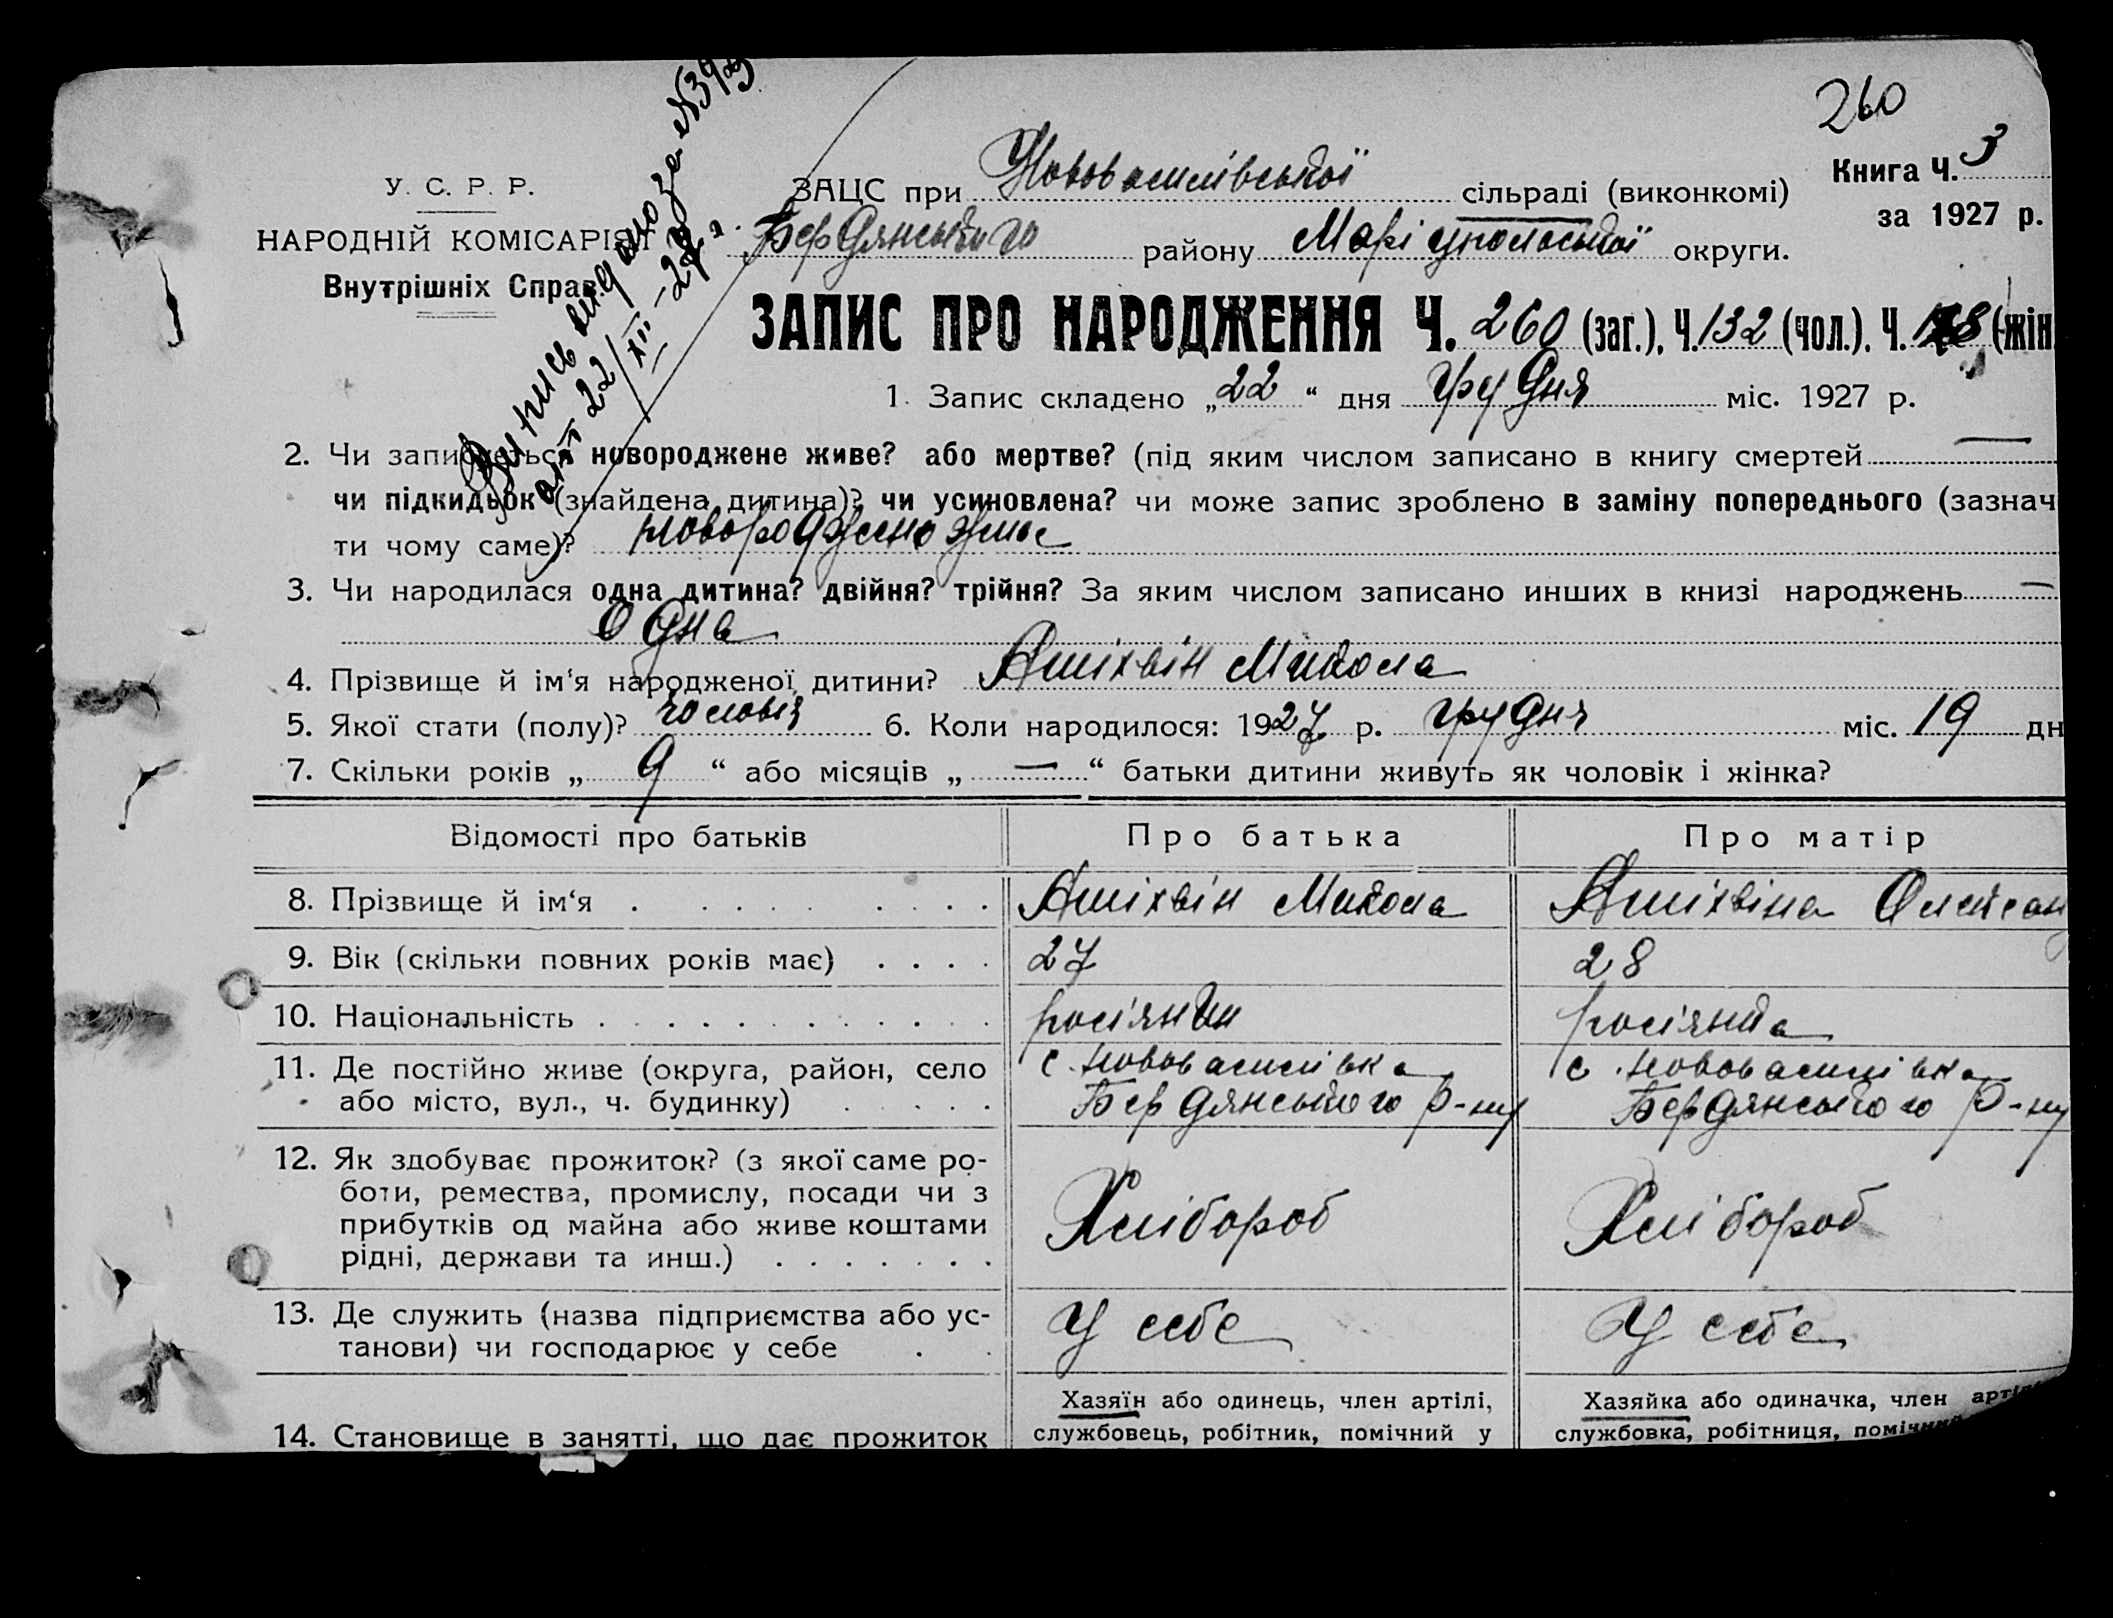 260
Книга Ч. 3
за 1927 р.
У. С. Р. Р.
НАРОДНІЙ КОМІСАРІЯТ
Внутрішніх Справ
Випись видано за №393
акт 22/XII-27 р.
ЗАЦС при Нововасилівської сільраді (виконкомі)
Бердянського району Маріупольської округи.
ЗАПИС ПРО НАРОДЖЕННЯ Ч. 260 (заг.), Ч. 132 (чол.), Ч. (жін.
1. Запис складено „22“ дня грудня міс. 1927 р.
2. Чи записується новороджене живе? або мертве? (під яким числом записано в книгу смертей —
чи підкидьок (знайдена дитина)? чи усиновлена? чи може запис зроблено в заміну попереднього (зазнач
ти чому саме)? новороджено живе
3. Чи народилася одна дитина? двійня? трійня? За яким числом записано инших в книзі народжень —
одна
4. Прізвище й ім‘я народженої дитини? Ашіхвін Микола
5. Якої стати (полу)? чоловіч 6. Коли народилося: 1927 р. грудня міс. 19 дн
7. Скільки років „ 9 “ або місяців „ — “ батьки дитини живуть як чоловік і жінка?
Відомості про батьків Про батька Про матір
8. Прізвище й ім‘я Ашіхвін Микола Ашіхвіна Олексан
9. Вік (скільки повних років має) 27 28
10. Національність росіянин росіянка
11. Де постійно живе (округа, район, село с. Нововасилівка с. Нововасилівка
або місто, вул., ч. будинку) Бердянського р-ну Бердянського р-ну
12. Як здобуває прожиток? (з якої саме ро-
боти, ремества, промислу, посади чи з
прибутків од майна або живе коштами Хлібороб Хлібороб
рідні, держави та инш.)
13. Де служить (назва підприємства або ус- У себе У себе
танови) чи господарює у себе
Хазяїн або одинець, член артілі, Хазяйка або одиначка, член артілі
14. Становище в занятті, що дає прожиток службовець, робітник, помічний у службовка, робітниця, помічний